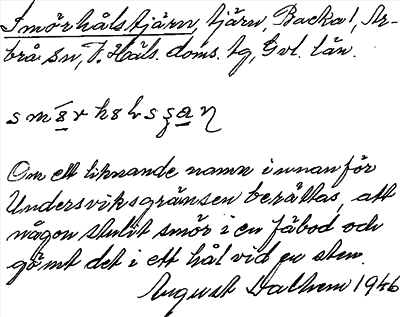 Smörhålstjärn, tjärn, Backa 1, Ar-
brå sn, N. Häls. doms. tg, Gvl. län.
Om ett liknande namn innanför
Undersviksgränsen berättas, att
någon stulit smör i en fäbod och
gömt det i ett hål vid en sten.
August Dalhem 1946